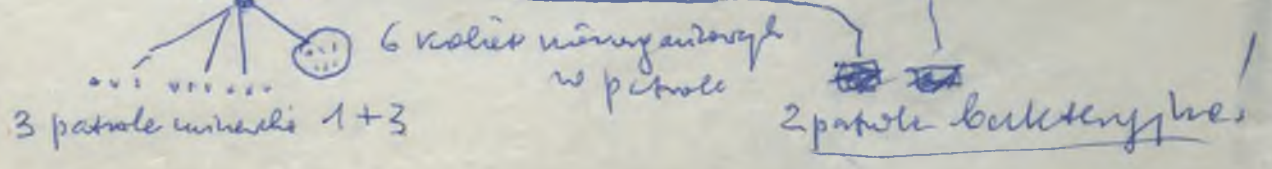 6 kobiet niezorganizowanych
w patrole
3 patrole minerskie 1+3
2 patrole bakteryjne!